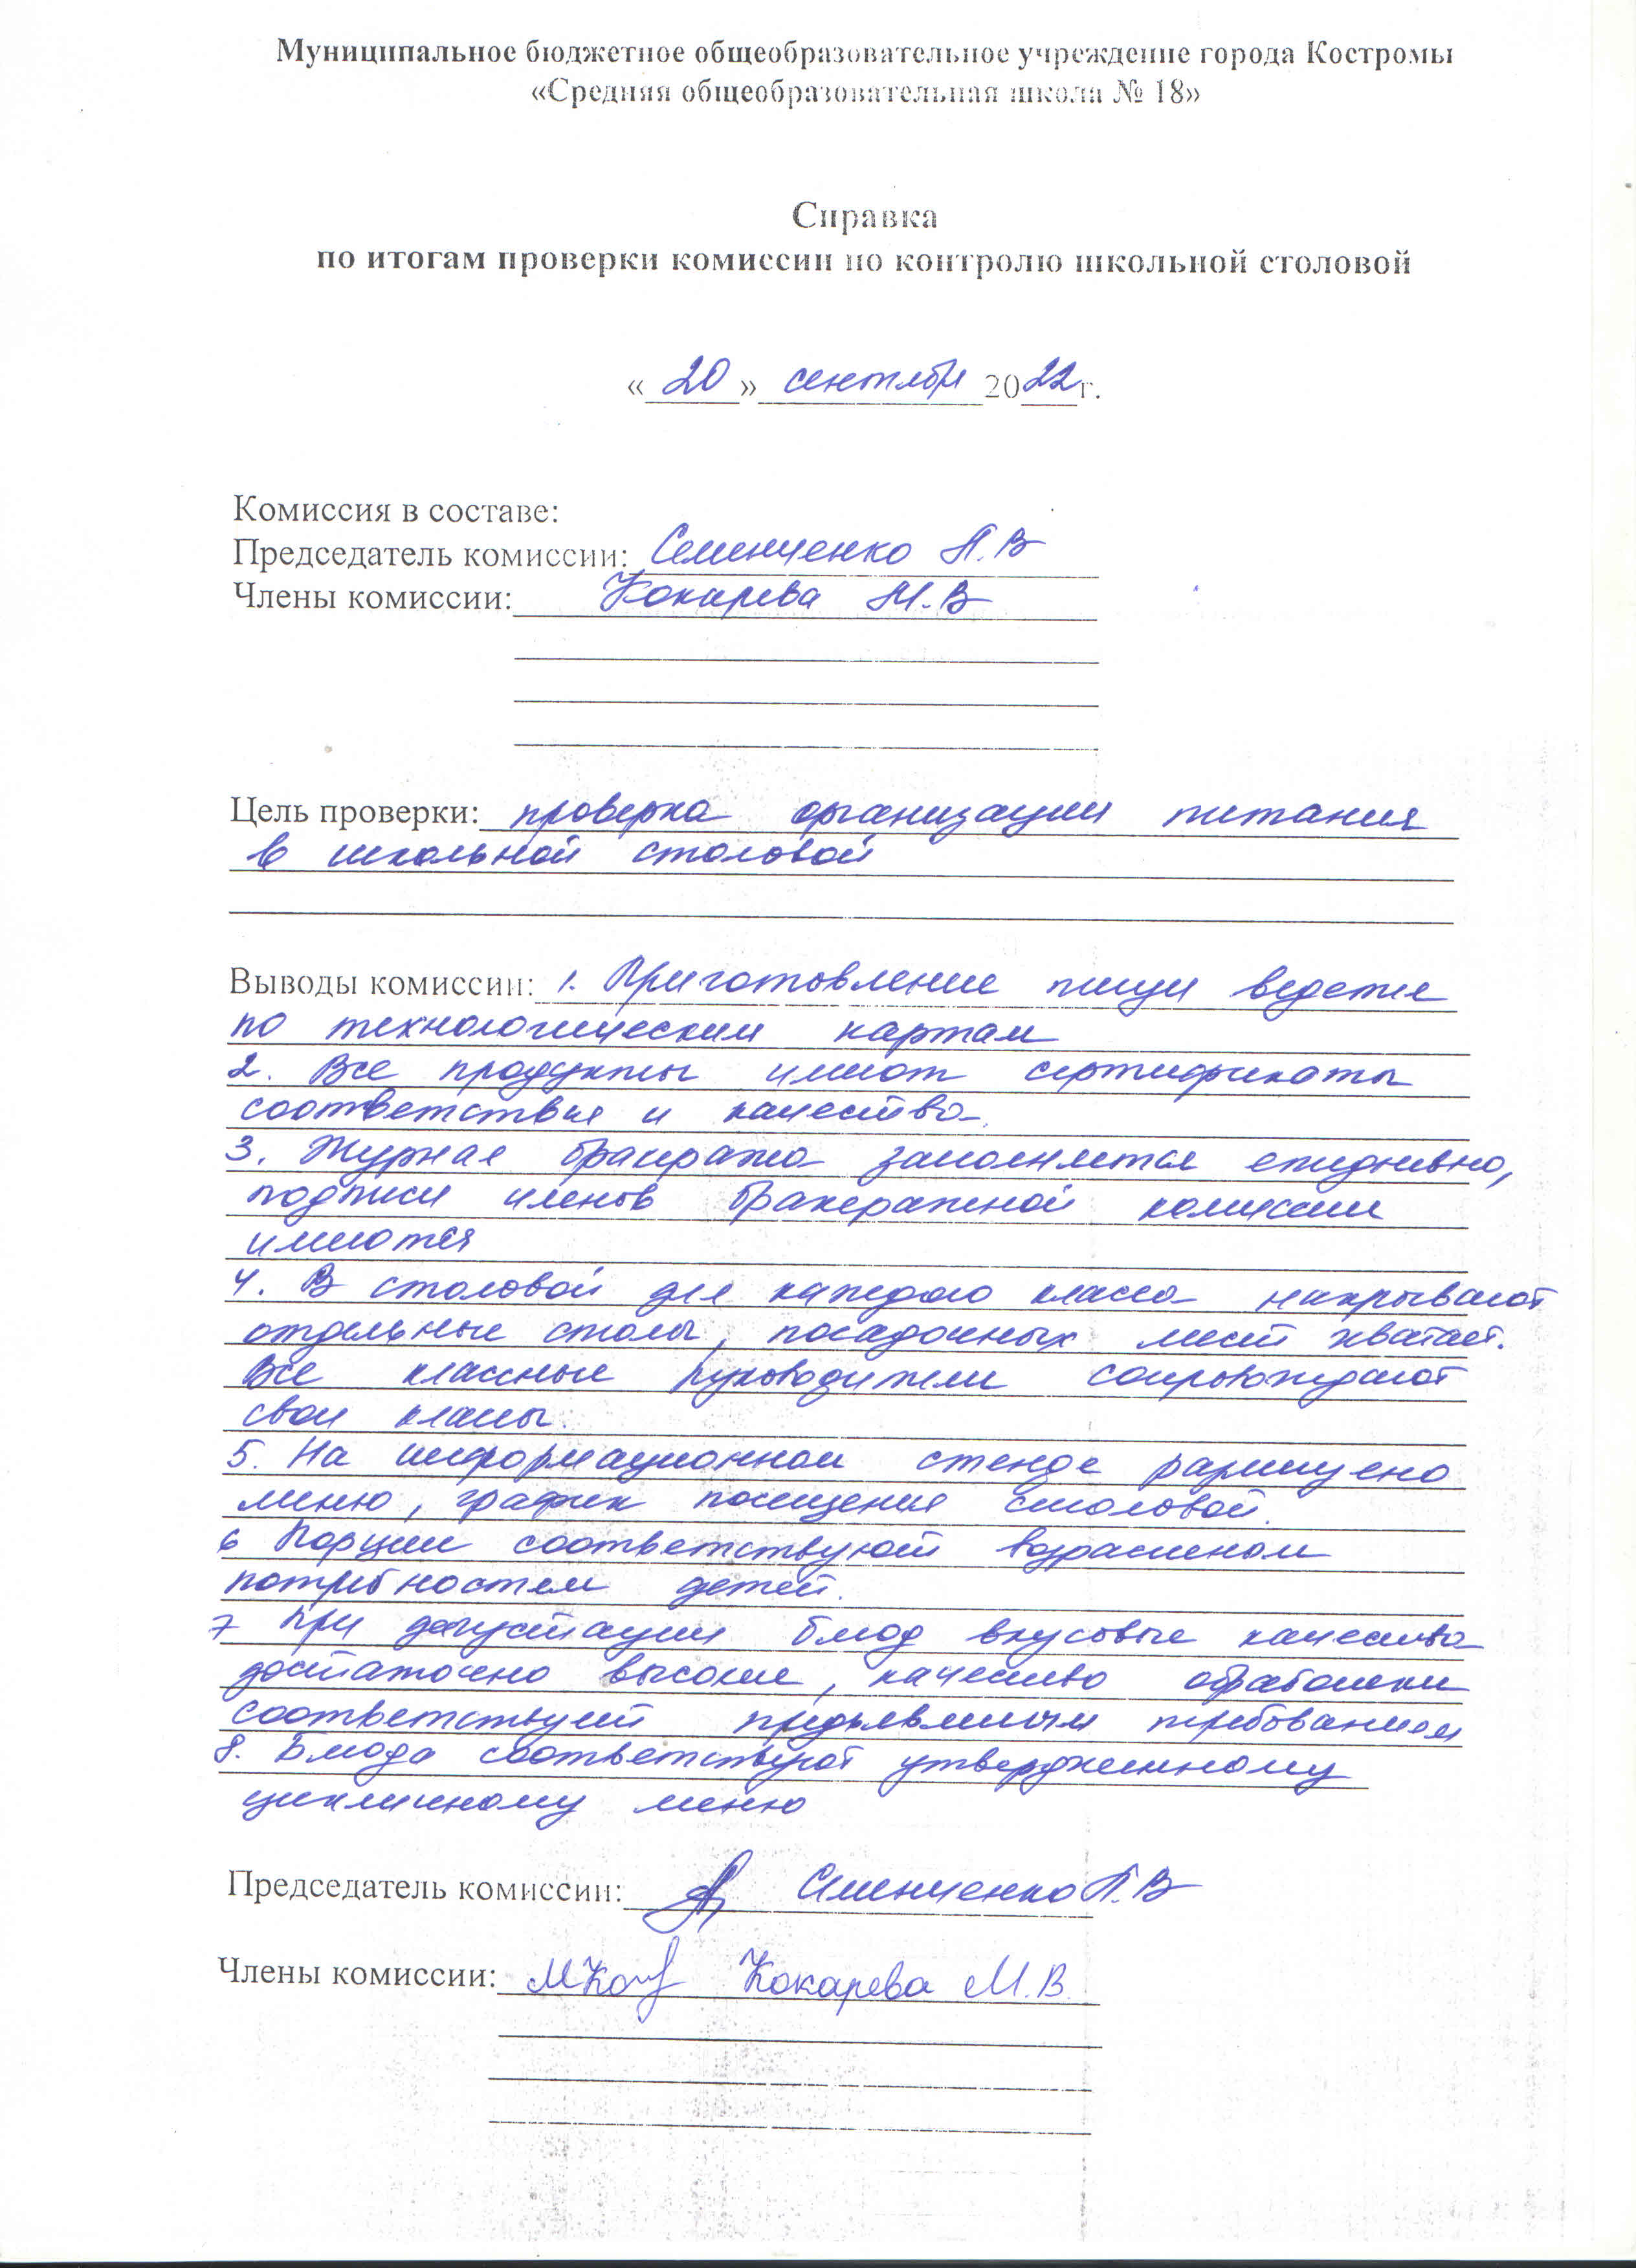 Муниципальное бюджетное общеобразовательное учреждение города Костромы
«Средняя общеобразовательная школа № 18»
Справка
по итогам проверки комиссии по контролю школьной столовой
«20» сентября 2022г.
Комиссия в составе:
Председатель комиссии: Семенченко А.В
Члены комиссии: Кокарева М.В
Цель проверки: проверка организации питания
в школьной столовой
Выводы комиссии: 1. Приготовление пищи ведется
по технологическим картам
2. Все продукты имеют сертификаты
соответствия и качества.
3. Журнал бракеража заполняется ежедневно,
подписи членов бракеражной комиссии
имеются
4. В столовой для каждого класса накрывают
отдельные столы, посадочных мест хватает.
Все классные руководители сопровождают
свои классы.
5. На информационном стенде размещено
меню, график посещения столовой.
6 Порции соответствуют возрастном
потребностям детей.
7 При дегустации блюд вкусовые качества
достаточно высокие, качество обработки
соответствует предъявленым требованиям
8. Блюда соответствуют утвержденному
цикличному меню
Председатель комиссии: Семенченко А.В
Члены комиссии: Кокарева М.В.